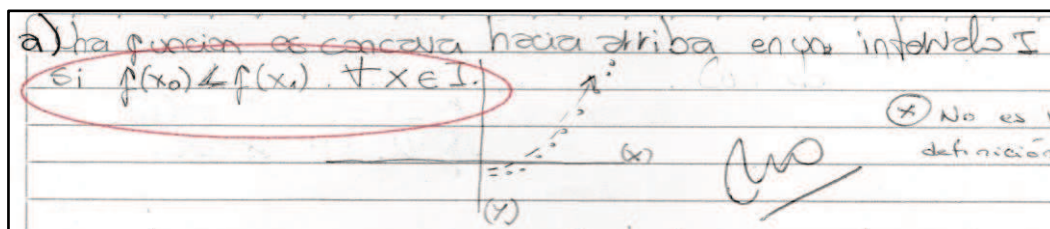 a) La funcion es concava hacia arriba en un intervalo I
Si f(x₀) < f(x₁). ∀ x ∈ I.
(x)
(y)
(x) No es
definición